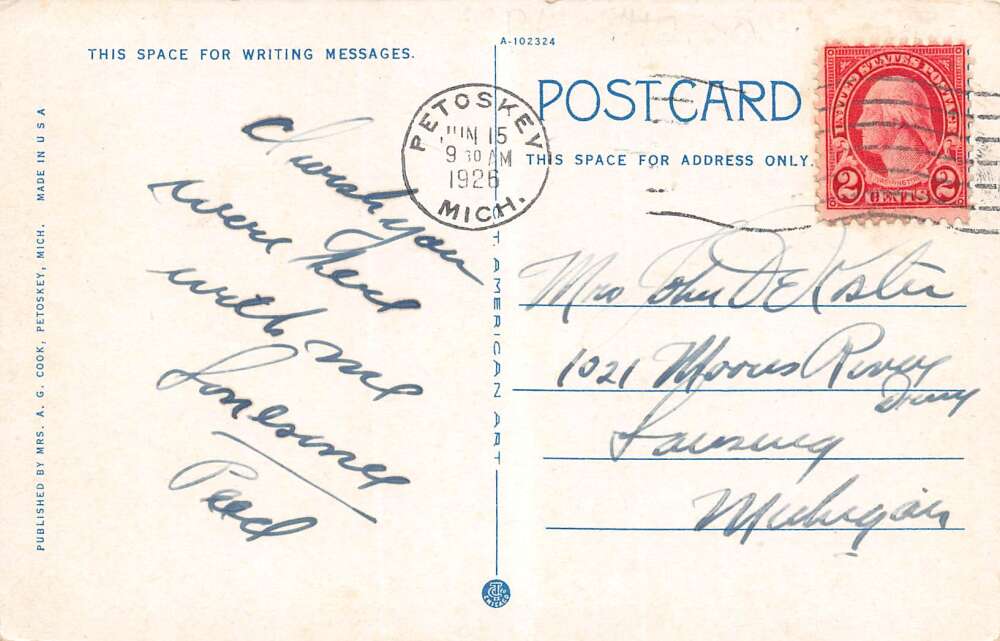 THIS SPACE FOR WRITING MESSAGES.
A-102324
POST CARD
THIS SPACE FOR ADDRESS ONLY.
PETOSKEY
JUN 15
9 30 AM
1926
MICH.
UNITED STATES POSTAGE
WASHINGTON
2 CENTS 2
PUBLISHED BY MRS. A. G. COOK, PETOSKEY, MICH. MADE IN U S A
I wish you
were here
with me
Lonesome
T AMERICAN ART
Mrs John DeKoster
1021 Moores River
Drive
Lansing
Michigan
CHICAGO